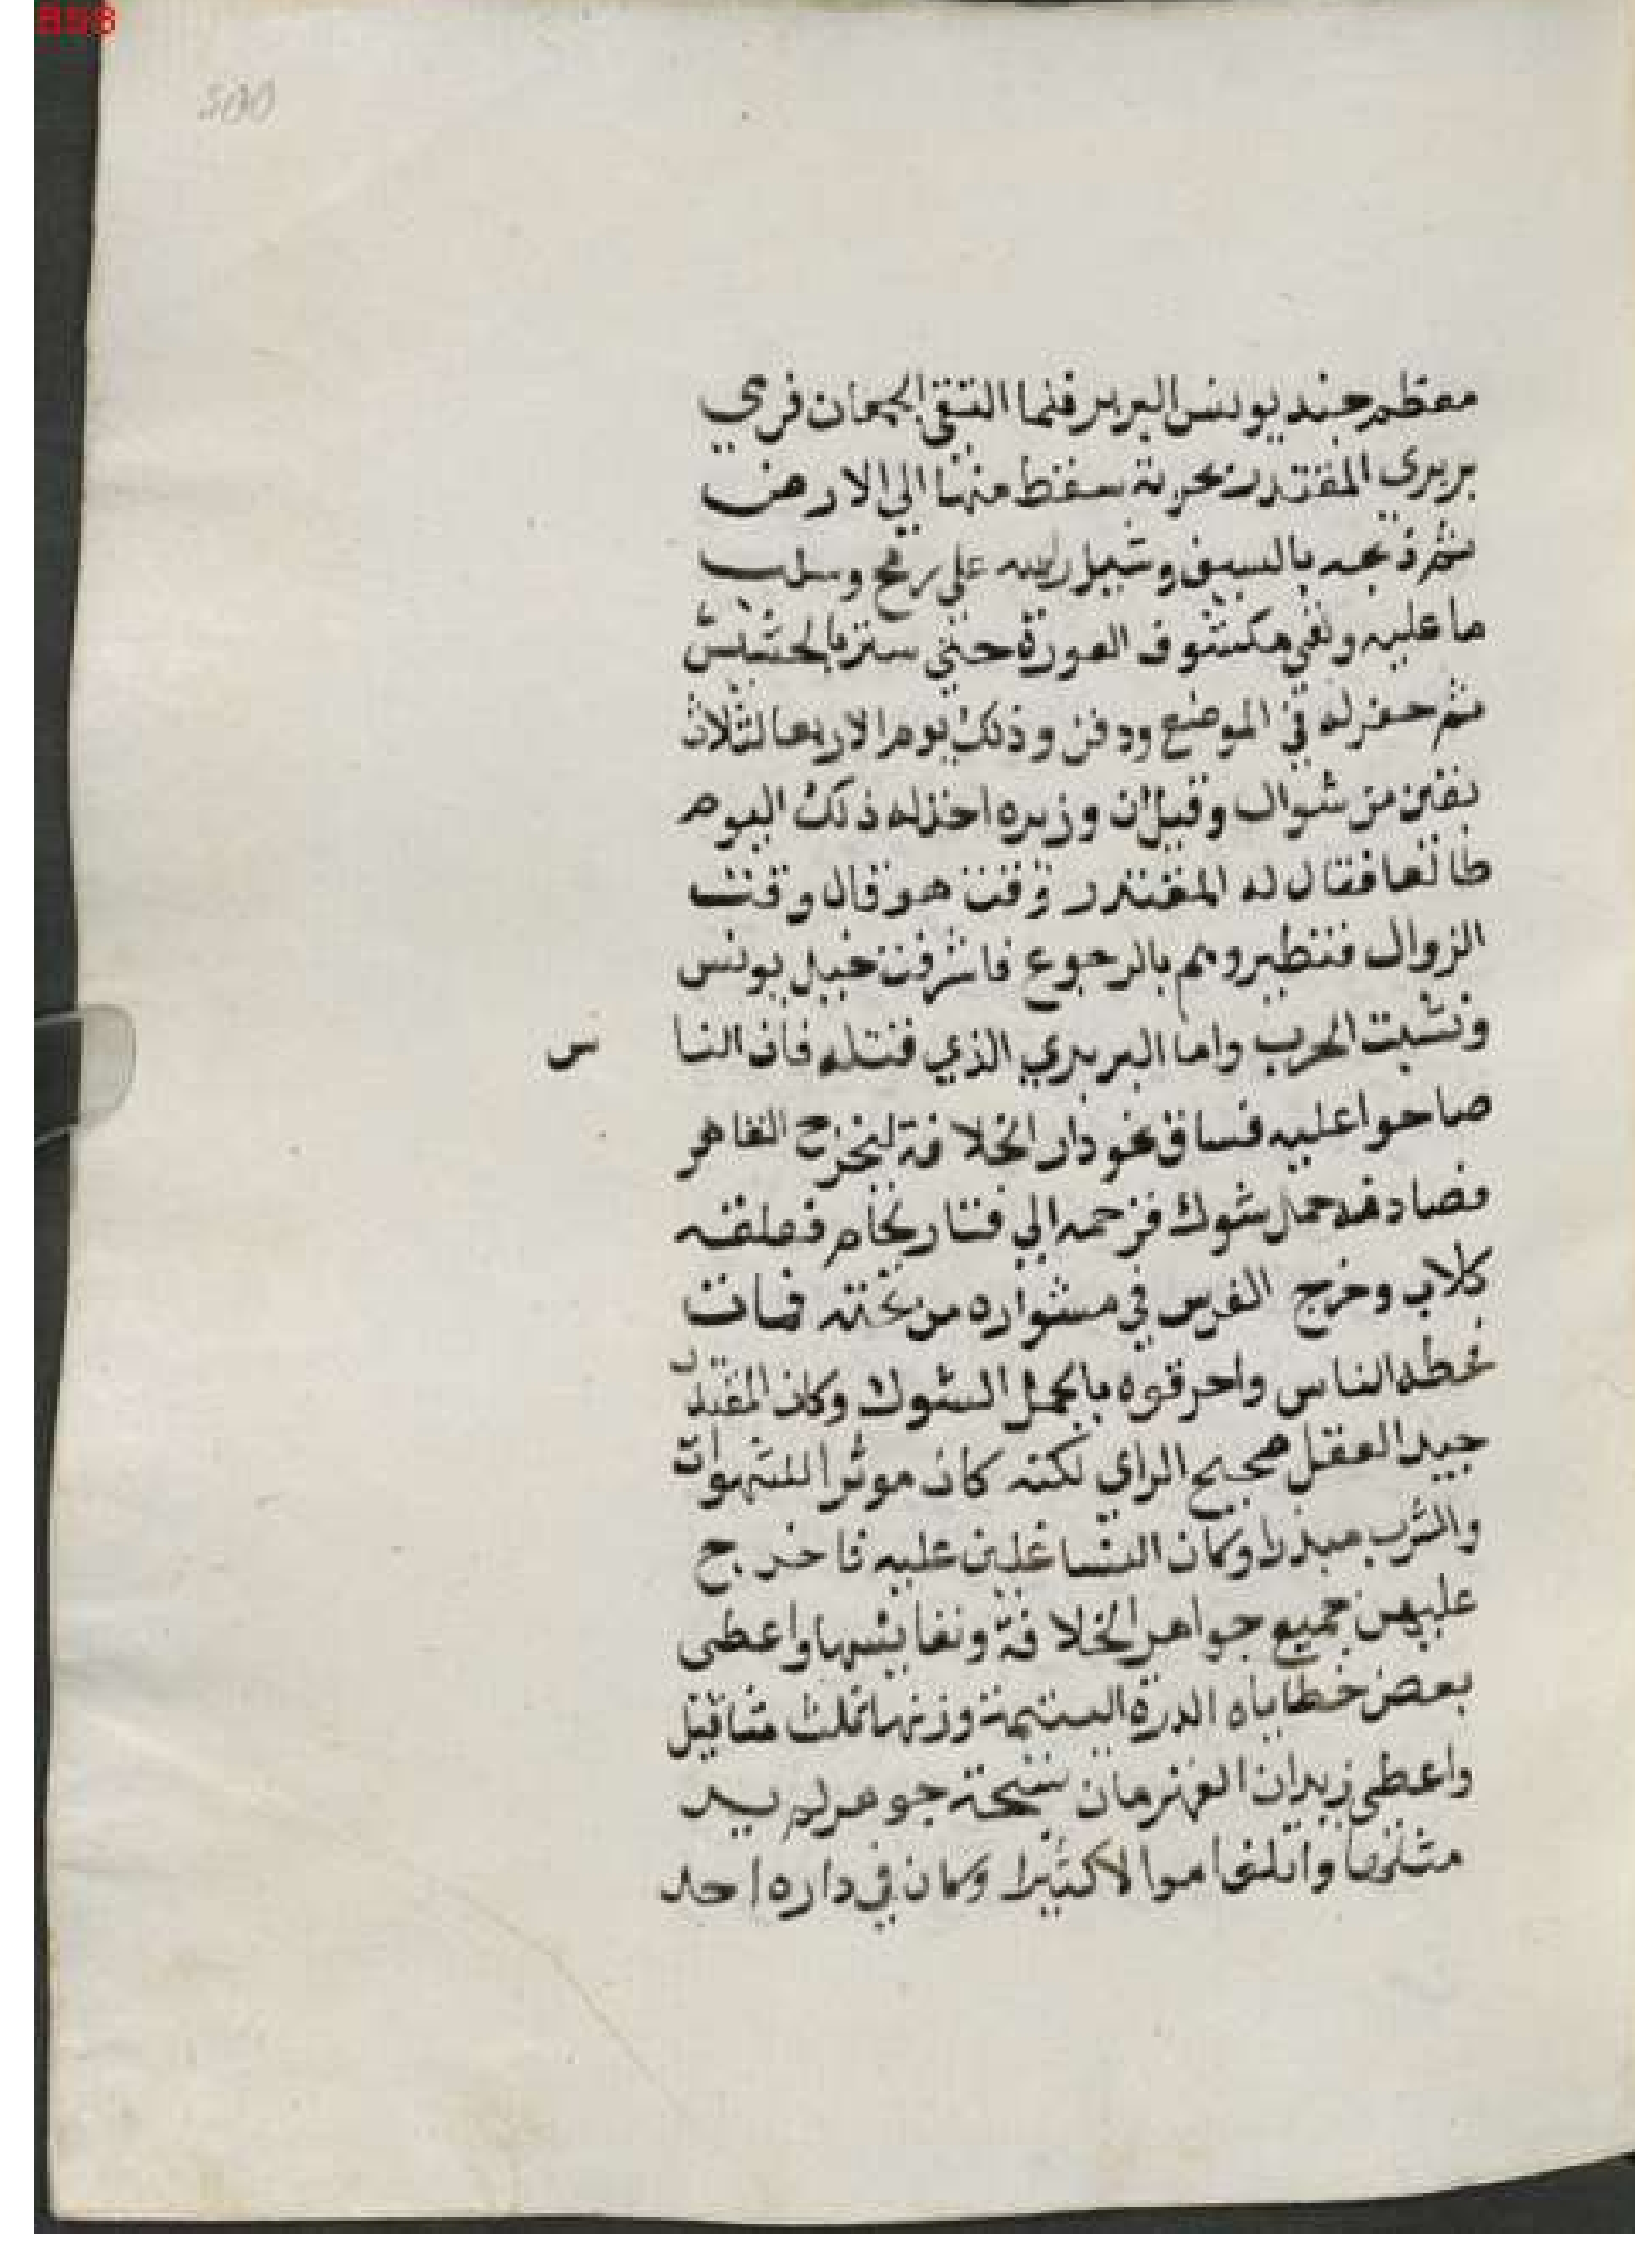 500
معظم جند يونس البربر فلما التقي الجمعان فري
بربري المقتدر بحربة سقط منها الي الارض
ثم ذبحه بالسيف وشيل راسه علي رمح وسلب
ما عليه وبقي مكشوف العورة حتي ستر بالحشيش
ثم حفر له في الموضع ودفن وذلك يوم الاربعا لثلاث
بقين من شوال وقيل ان وزيره اخذ له ذلك اليوم
طالعا فقال له المقتدر وقت هو قال وقت
الزوال فتطير وهم بالرجوع فاشرفت خيل يونس
ونشبت الحرب واما البربري الذي قتله فان النا س
صاحوا عليه فساق نحو دار الخلافة ليخرج القاهر
فصادفه حمل شوك فزحمه الي قنار لحام فعلقه
كلاب وخرج الفرس في مشواره من تحته فمات
فحطه الناس واحرقوه بالحمل الشوك وكان المقتدر
جيد العقل صحيح الراي لكنه كان موثرا للشهوات
والشرب مبذرا وكان النسا غلبن عليه فاخرج
عليهن جميع جواهر الخلافة ونفايسها واعطي
بعض خطاياه الدرة اليتيمة وزنها ثلث مثاقيل
واعطي زيدان القهرمان سبحة جوهر لم ير
مثلها واتلف اموالا كثيرا وكان في داره احد